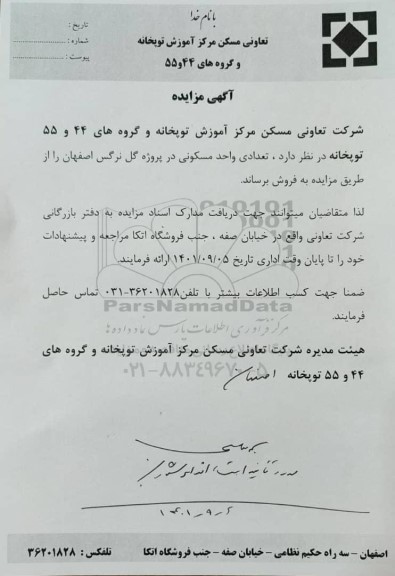 با نام خدا
تعاونی مسکن مرکز آموزش توپخانه
و گروه های ۴۴و۵۵
تاریخ :
شماره :
پیوست :
آگهی مزایده
شرکت تعاونی مسکن مرکز آموزش توپخانه و گروه های ۴۴ و ۵۵
توپخانه در نظر دارد ، تعدادی واحد مسکونی در پروژه گل نرگس اصفهان را از
طریق مزایده به فروش برساند.
لذا متقاضیان میتوانند جهت دریافت مدارک اسناد مزایده به دفتر بازرگانی
شرکت تعاونی واقع در خیابان صفه ، جنب فروشگاه اتکا مراجعه و پیشنهادات
خود را تا پایان وقت اداری تاریخ ۱۴۰۱/۰۹/۰۵ ارائه فرمایند.
ضمنا جهت کسب اطلاعات بیشتر با تلفن۳۶۲۰۱۸۲۸-۰۳۱ تماس حاصل
فرمایند.
ParsNamadData
مرکز فرآوری اطلاعات پارس نماد داده ها
هیئت مدیره شرکت تعاونی مسکن مرکز آموزش توپخانه و گروه های
۴۴ و ۵۵ توپخانه اصفهان
۰۲۱-۸۸۳۴۹۶۷۰-۵
۱۴۰۱,۹,۶
اصفهان - سه راه حکیم نظامی - خیابان صفه - جنب فروشگاه اتکا تلفکس : ۳۶۲۰۱۸۲۸